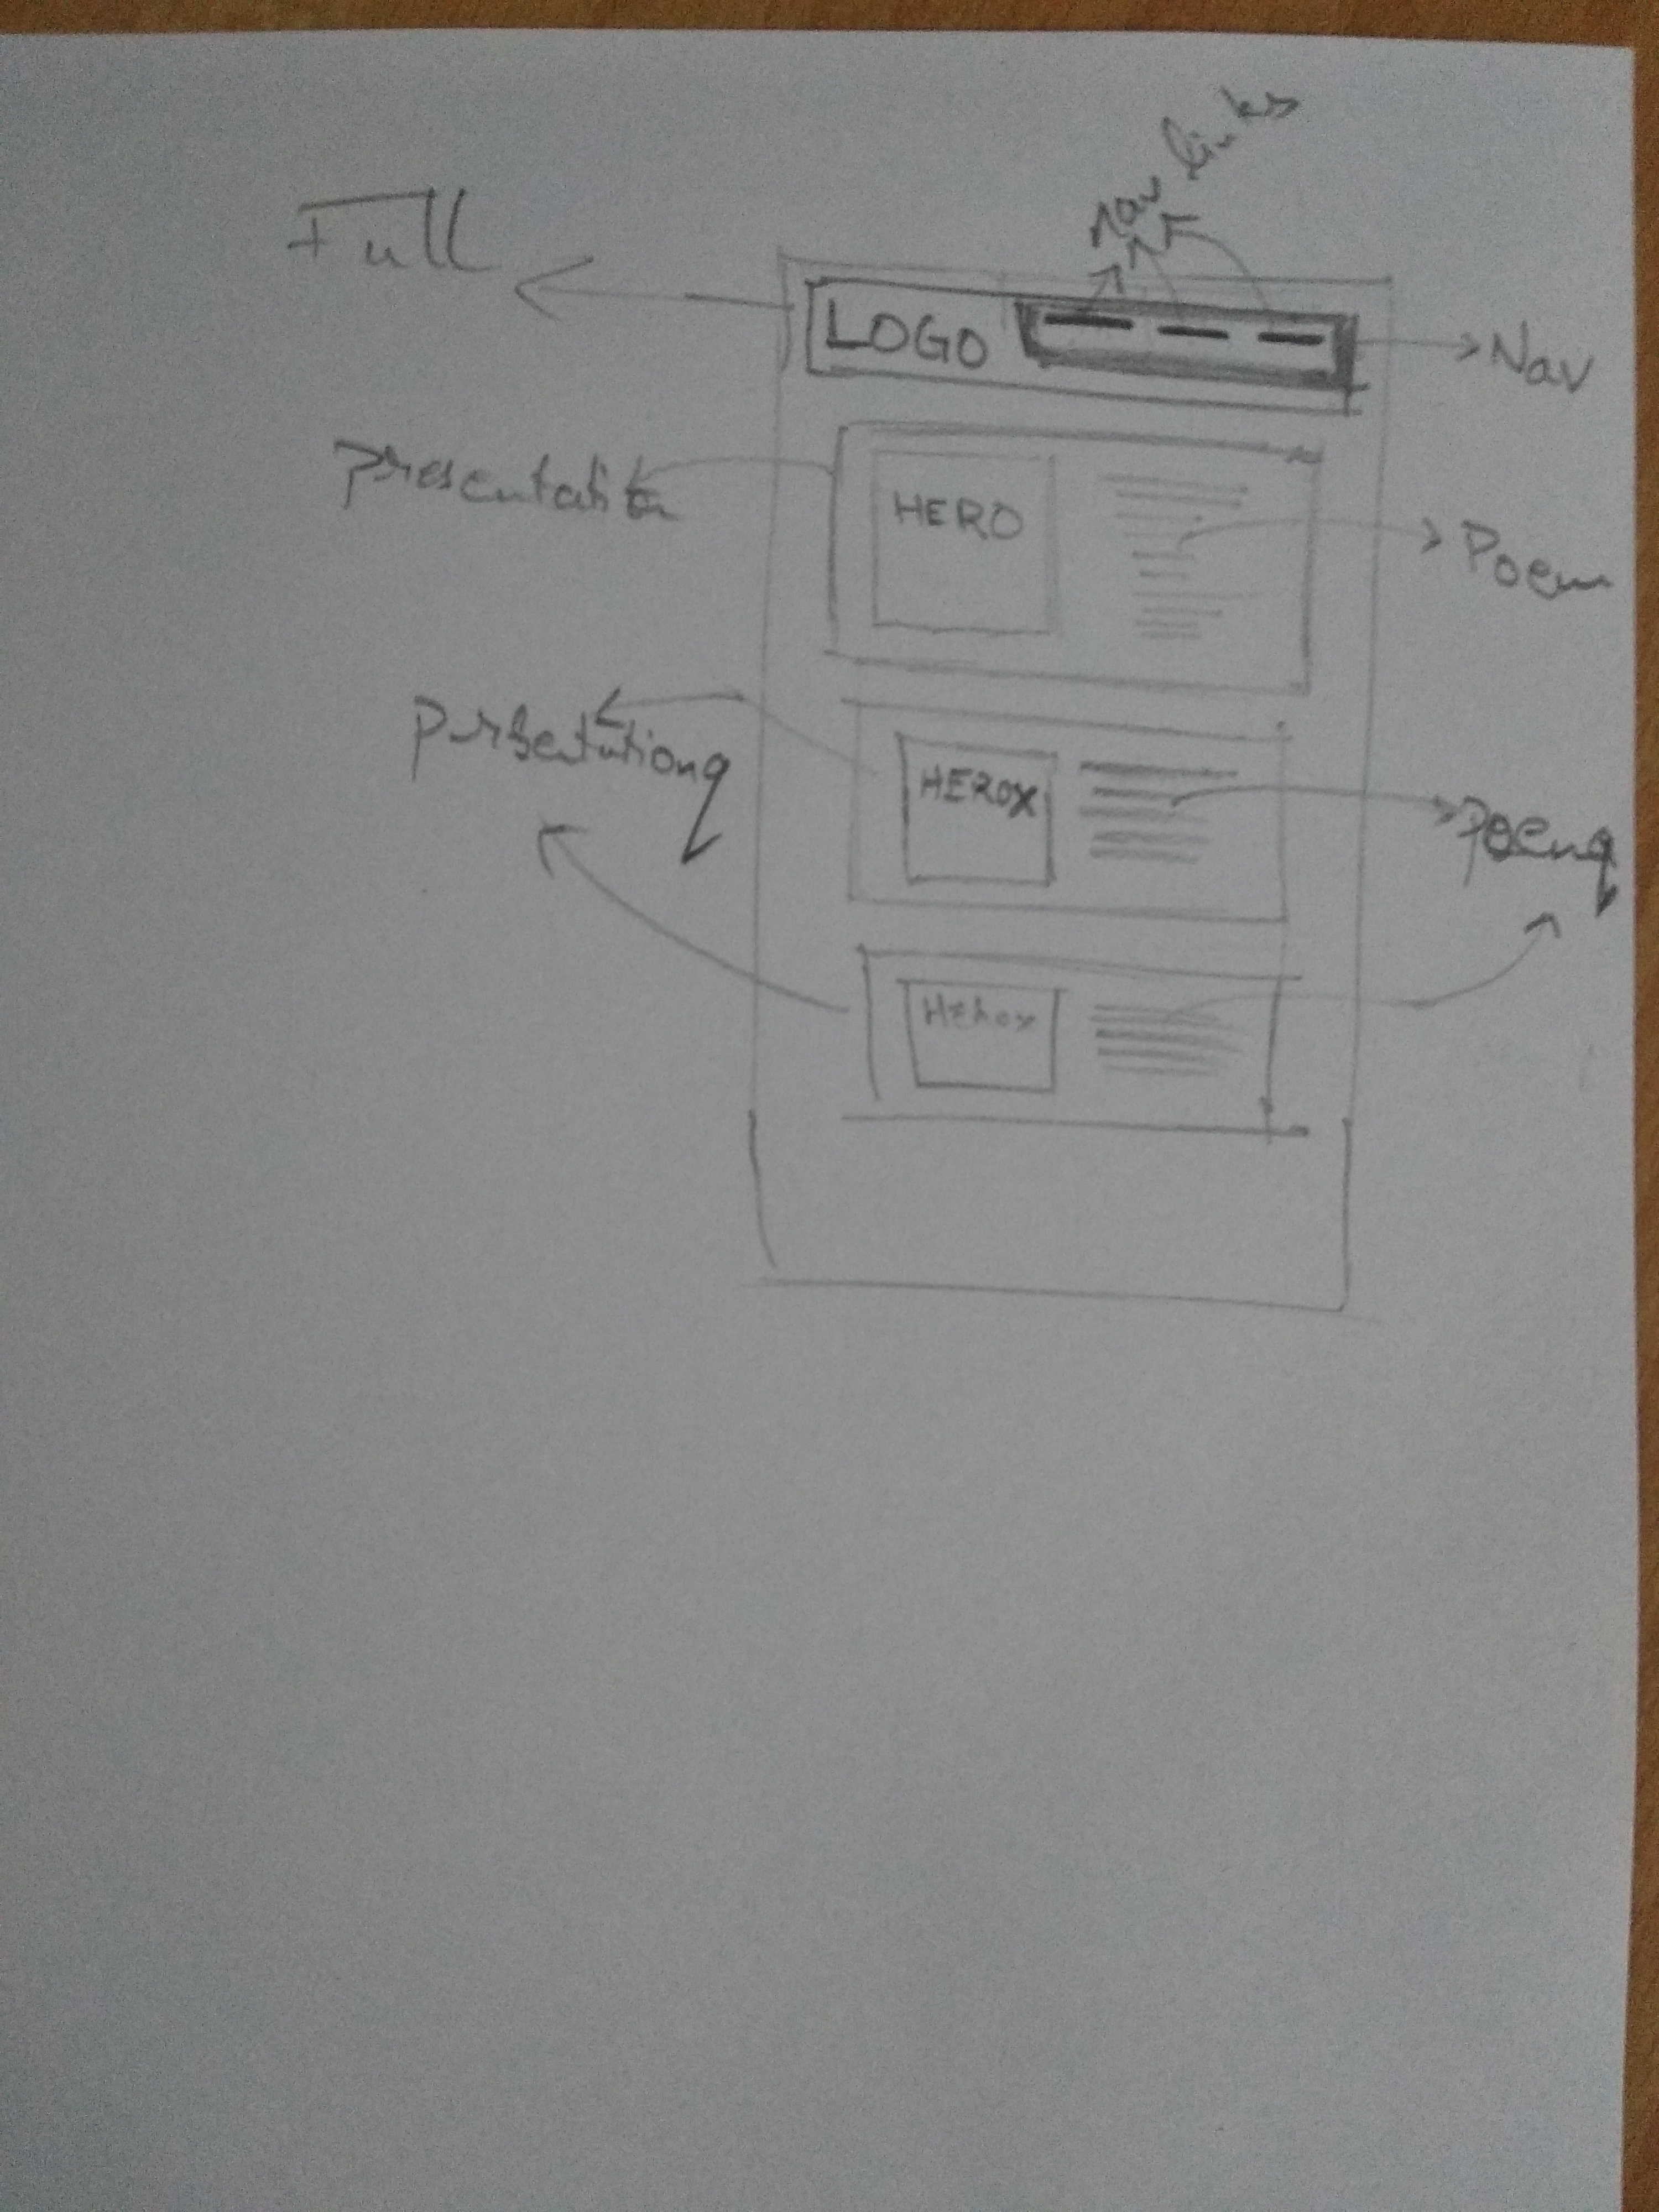 Nav links
Full
LOGO
Nav
Presentation
HERO
Poem
Presentationq
HEROX
Poemq
HEROX